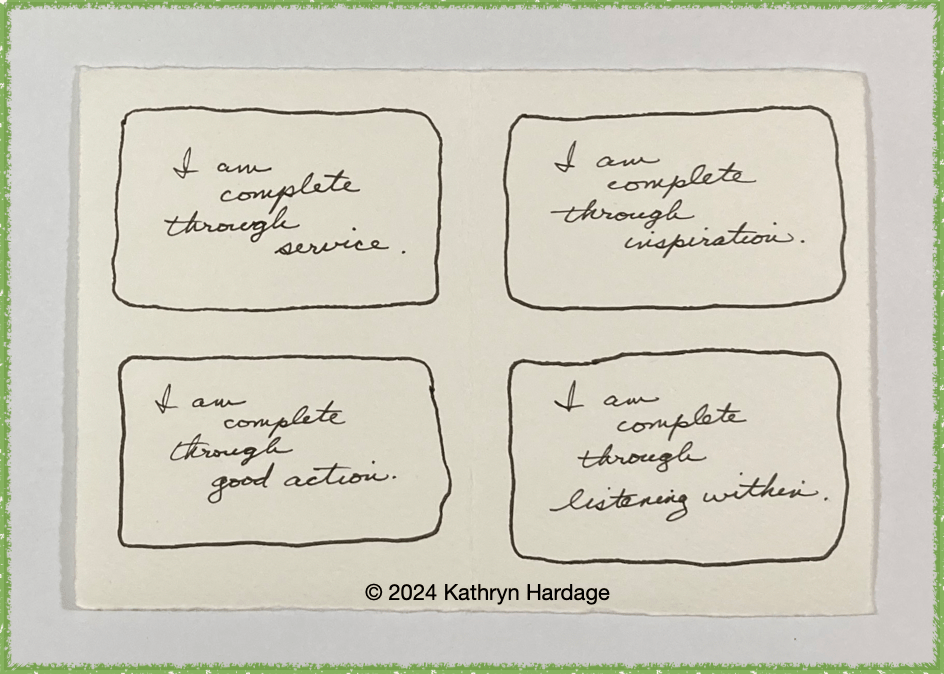 I am
complete
through
service.
I am
complete
through
inspiration.
I am
complete
through
good action.
I am
complete
through
listening within.
© 2024 Kathryn Hardage